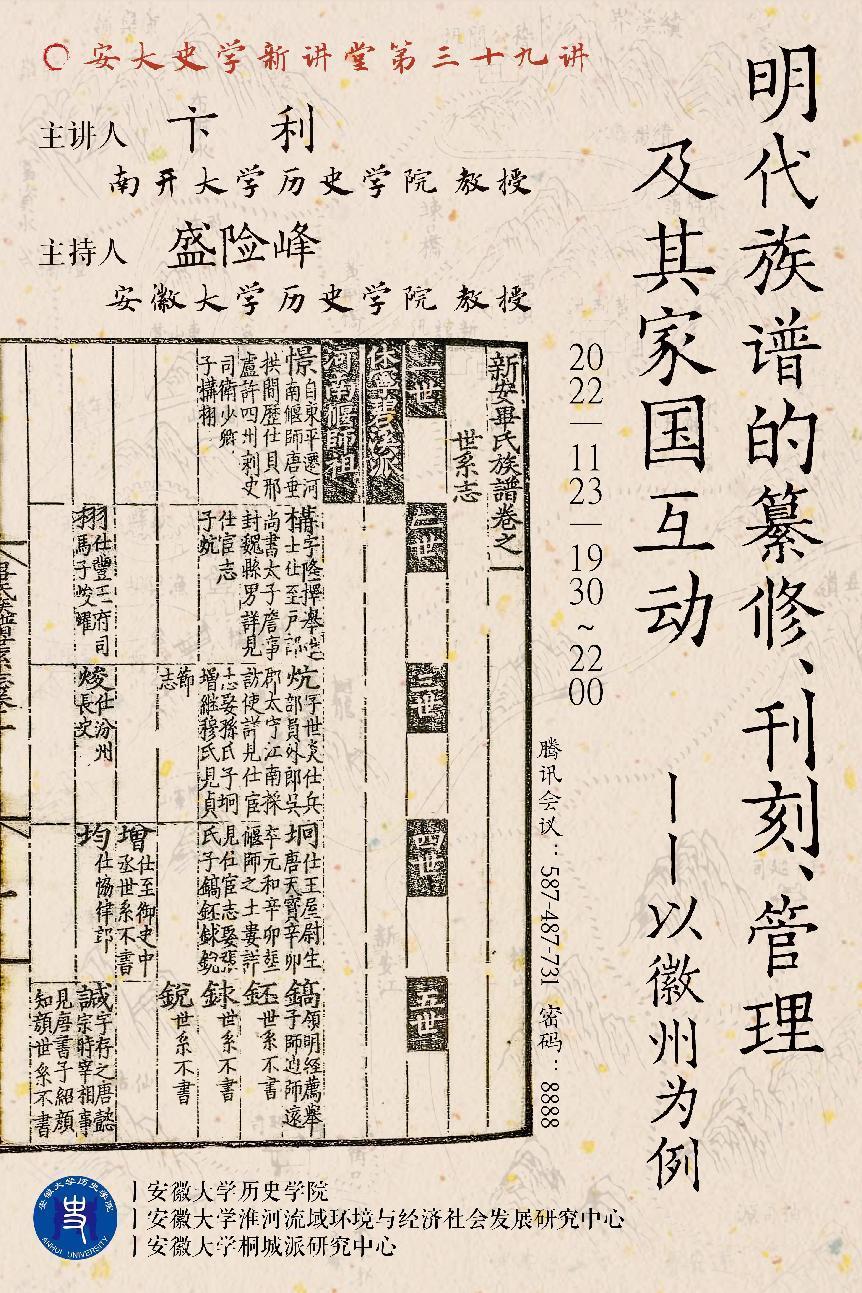 安大史学新讲堂第三十九讲
主讲人 卞利
南开大学历史学院 教授
主持人 盛险峰
安徽大学历史学院 教授
明代族谱的纂修、刊刻、管理
及其家国互动
——以徽州为例
2022—11—23—19 30~22 00
腾讯会议：587-487-731 密码：8888
新安畢氏族譜卷之一
世系志
一世
二世
三世
四世
五世
休寧碧溪派
河南偃師祖
憬 自東平遷河
南偃師唐垂
拱間歷仕貝邢
盧許四州刺史
司衛少卿
子構栩
構 字隆擇舉進
士仕至戶部
尚書太子詹事
封魏縣男詳見
仕宦志
子炕
炕 字世炎仕兵
部員外郎吳
郡太守江南採
訪使詳見仕宦
志娶孫氏子坰
增繼穆氏見貞
節
志
坰 仕王屋尉生
唐天寶辛卯
卒元和辛卯塟
偃師之土婁詳
見仕宦志娶裴
氏子鎬鉟銶銳
鎬 領明經薦舉
子師逈師遠
鉟 世系不書
銶 世系不書
銳 世系不書
栩 仕豐王府司
馬子峻耀
焌 仕汾州
長史
增 仕至御史中
丞世系不書
均 仕協律郎
誠 字存之唐懿
宗時宰相事
見唐書子紹顔
知顔世系不書
安徽大学历史学院
ANHUI UNIVERSITY
安徽大学历史学院
安徽大学淮河流域环境与经济社会发展研究中心
安徽大学桐城派研究中心